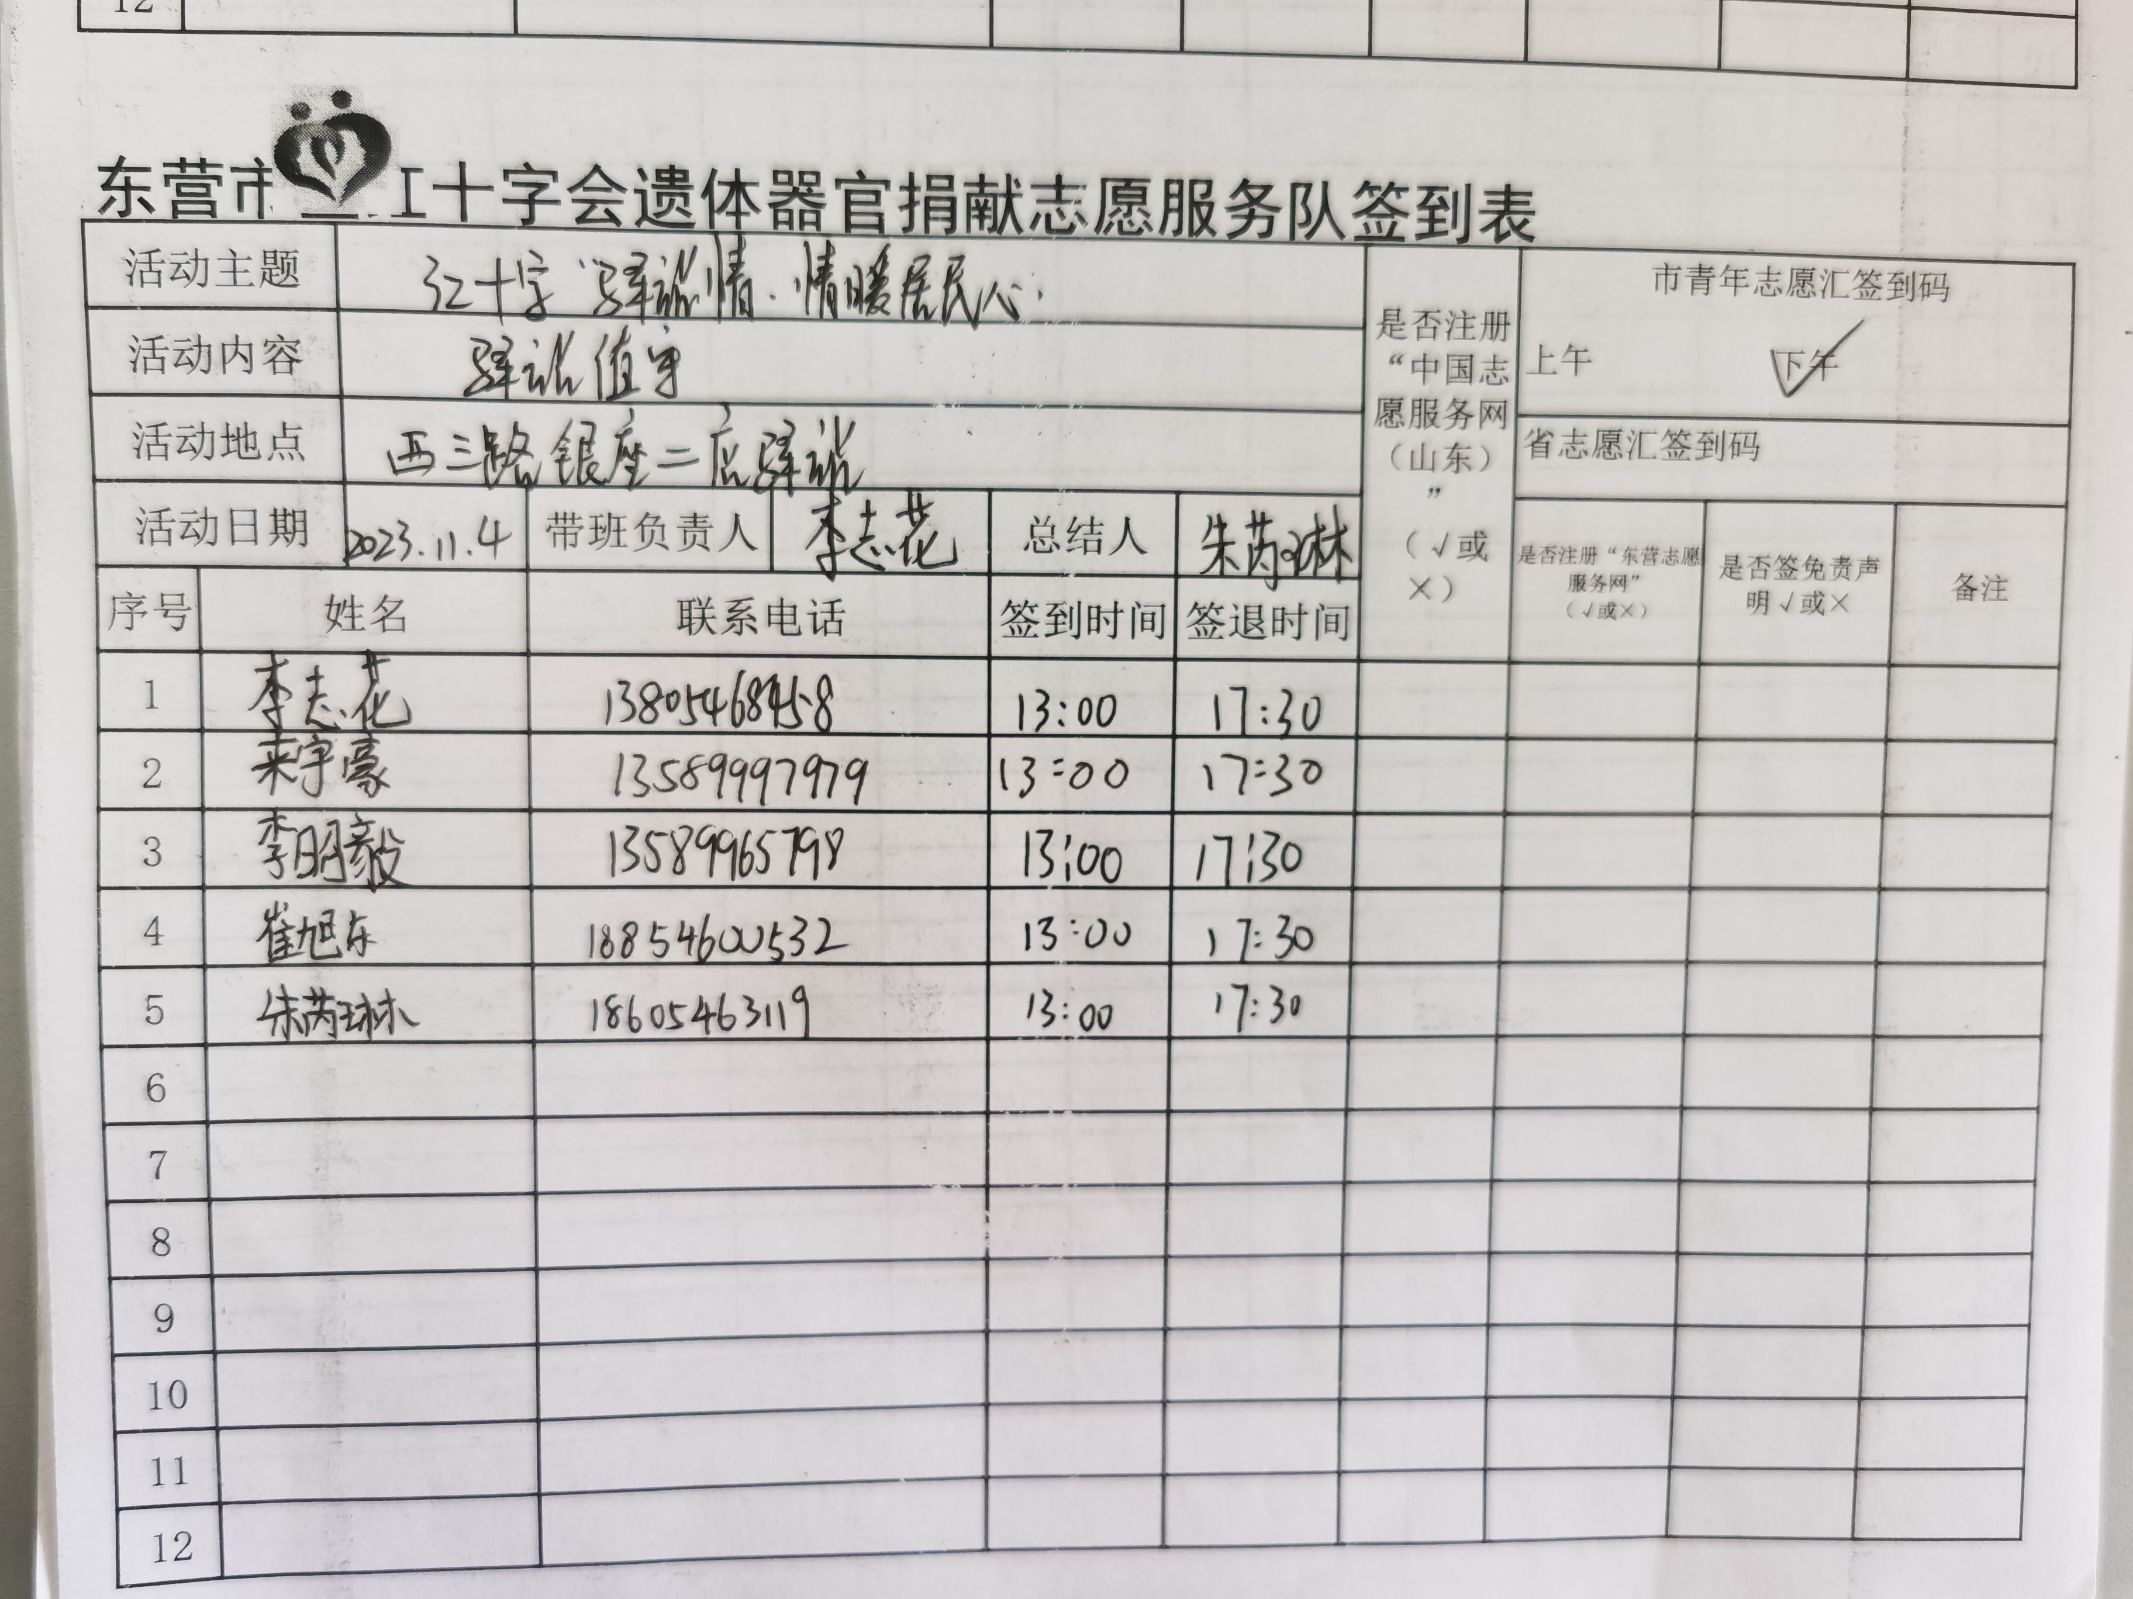 12
东营市红十字会遗体器官捐献志愿服务队签到表
活动主题 红十字"驿站情.情暖居民心. 是否注册“中国志愿服务网（山东）”（√或×） 市青年志愿汇签到码
活动内容 驿站值守 上午 下午 √
活动地点 西三路银座二店驿站 省志愿汇签到码
活动日期 2023.11.4 带班负责人 李志花 总结人 朱芮琳 是否注册“东营志愿服务网”（√或×） 是否签免责声明√或× 备注
序号 姓名 联系电话 签到时间 签退时间
1 李志花 13:00 17:30
2 来宇豪 13589997979 13:00 17:30
3 李明毅 13589965798 13:00 17:30
4 崔旭东 18854600532 13:00 17:30
5 朱芮琳 18605463119 13:00 17:30
6
7
8
9
10
11
12